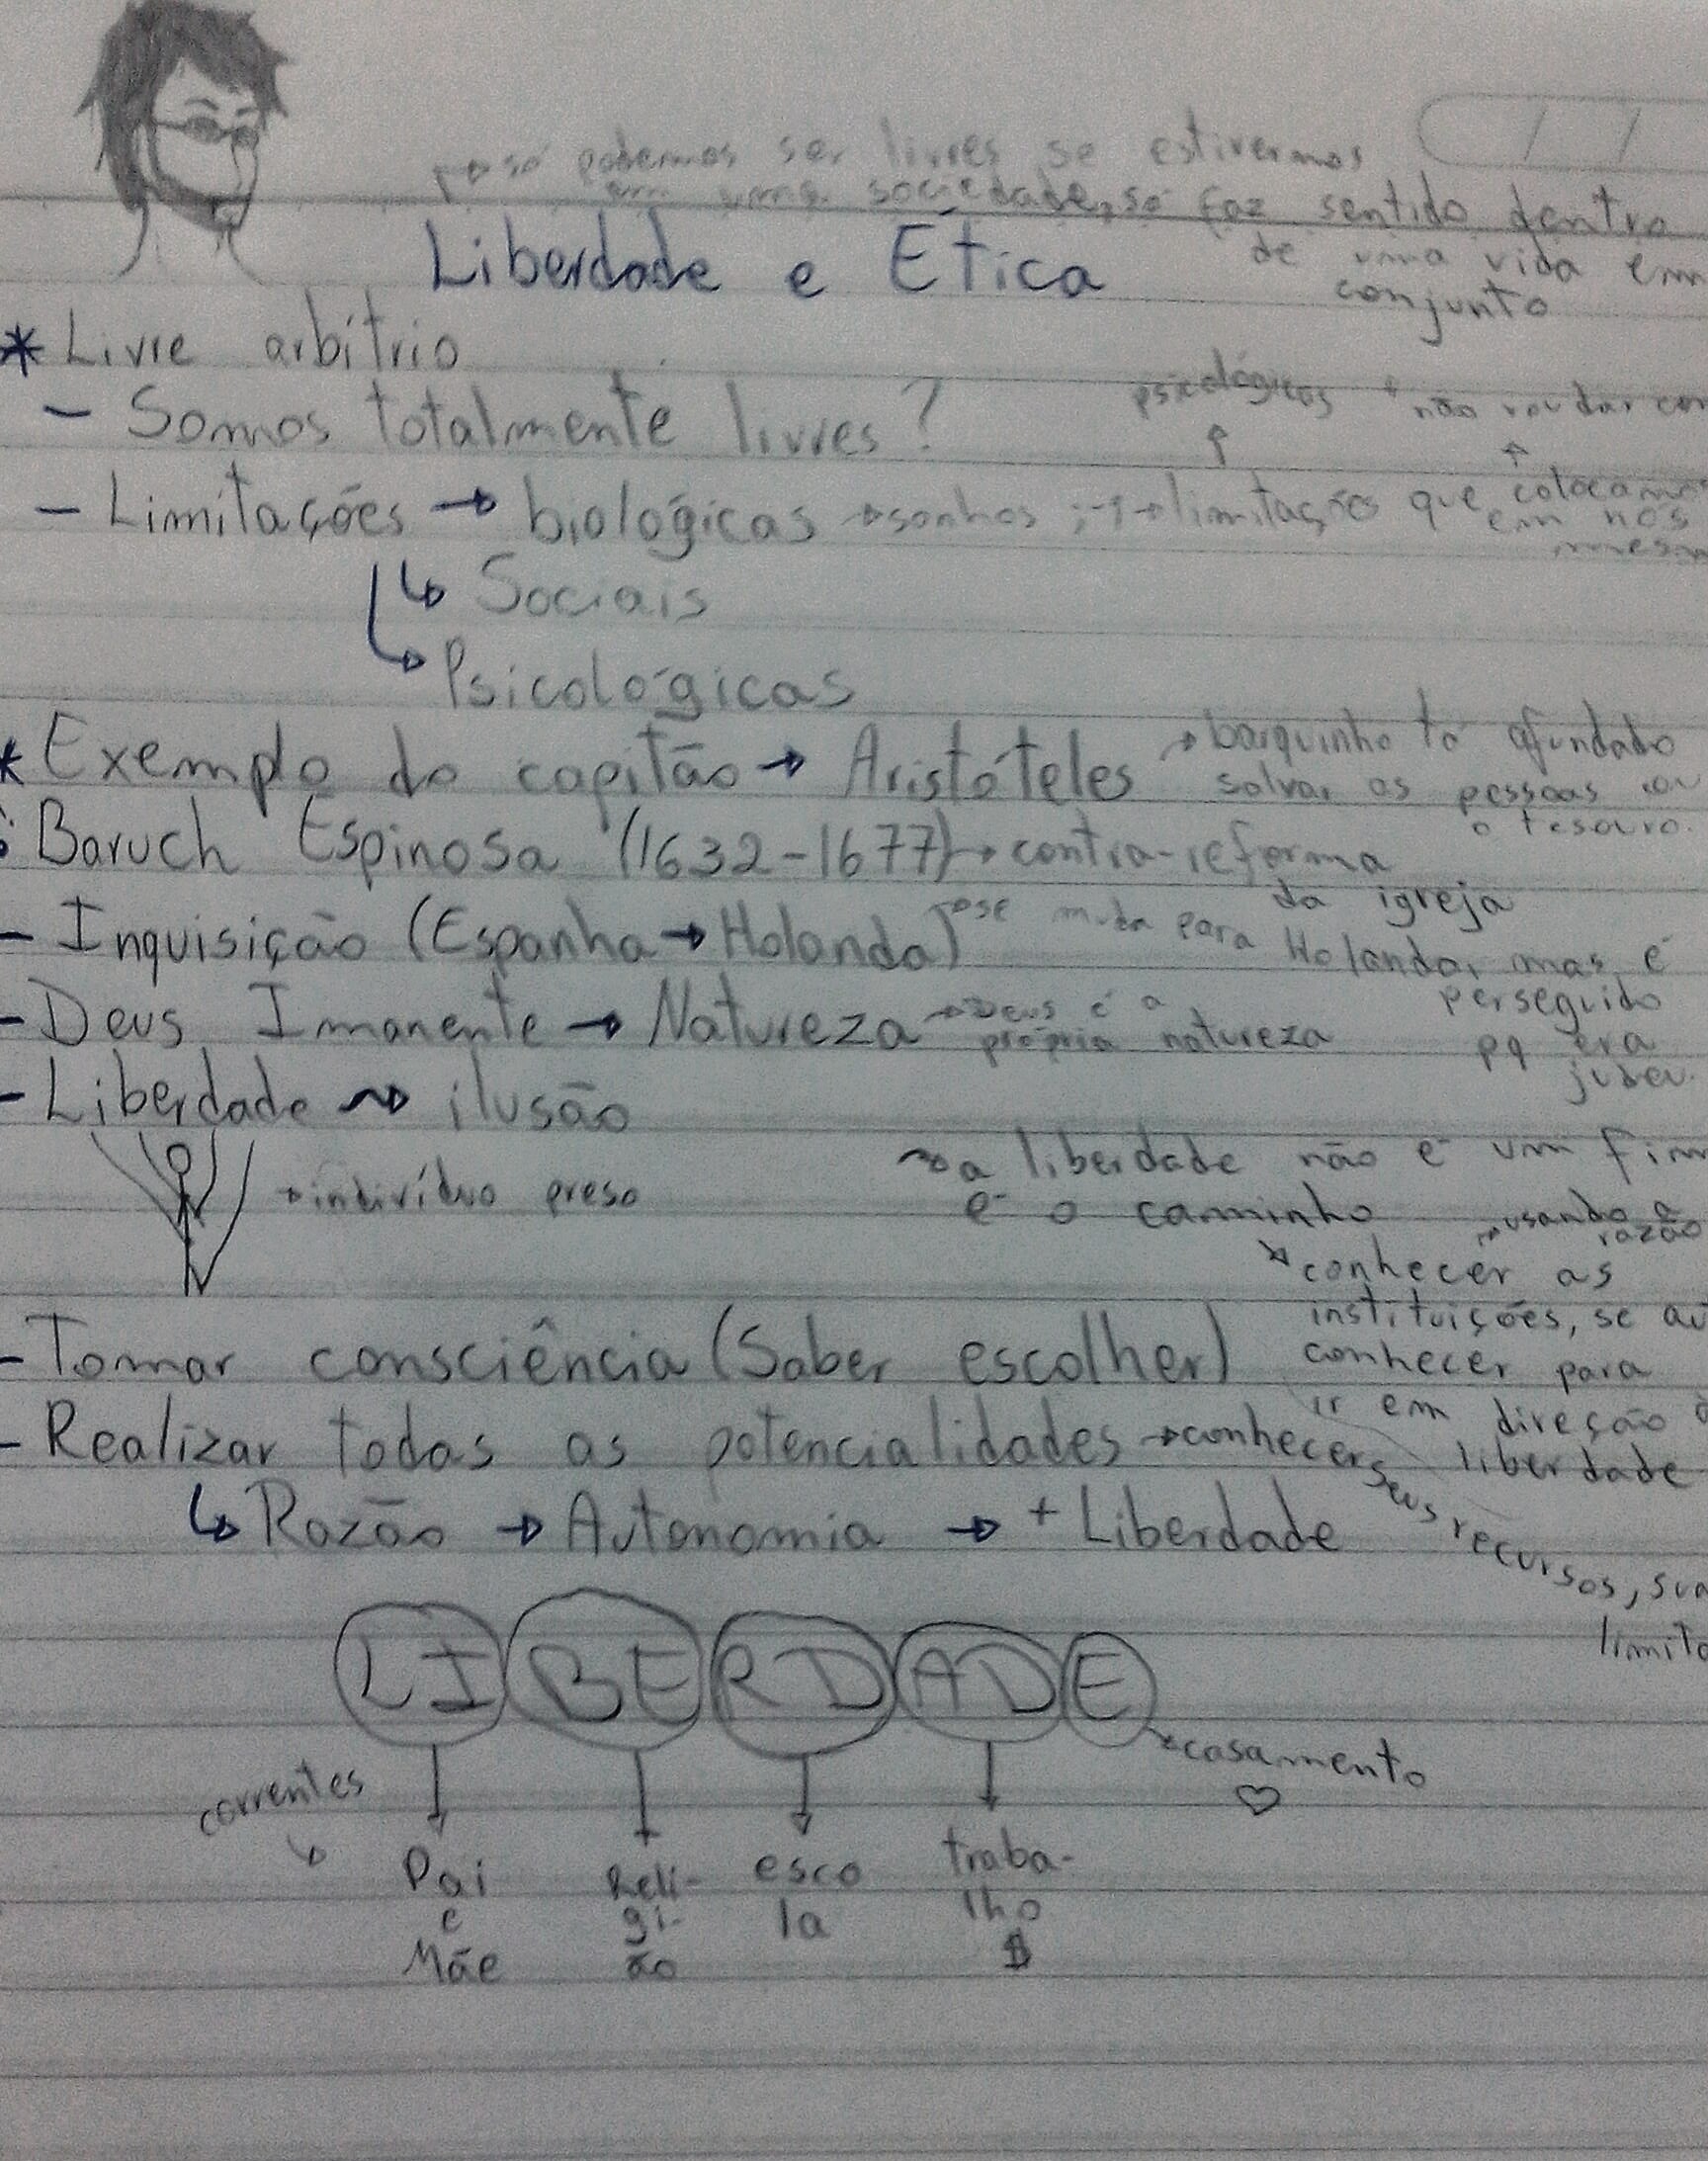 só podemos ser livres se estivermos
em uma sociedade, só faz sentido dentro
de uma vida em
conjunto
Liberdade e Ética
* Livre arbítrio
- Somos totalmente livres?
psicológicas
não vou dar con
- Limitações → biológicas → sonhos → limitações que colocamos
em nós
mesm
↳ Sociais
↳ Psicológicas
* Exemplo do capitão → Aristóteles → barquinho tá afundado
salvar as pessoas ou
o tesouro.
Baruch Espinosa (1632-1677) → contra-reforma
da igreja
- Inquisição (Espanha → Holanda) → se muda para Holanda, mas é
perseguido
pq era
judeu.
- Deus Imanente → Natureza → Deus é a
própria natureza
- Liberdade ~> ilusão
→ indivíduo preso
~> a liberdade não é um fim
é o caminho
→ usando a
razão
conhecer as
instituições, se au
conhecer para
ir em direção à
liberdade
- Tomar consciência (Saber escolher)
- Realizar todas as potencialidades → conhecer seus recursos, sua
limita
↳ Razão → Autonomia → + Liberdade
LIBERDADE
→ casamento
♡
correntes
Pai
e
Mãe
Reli-
gi-
ão
esco
la
traba-
lho
$